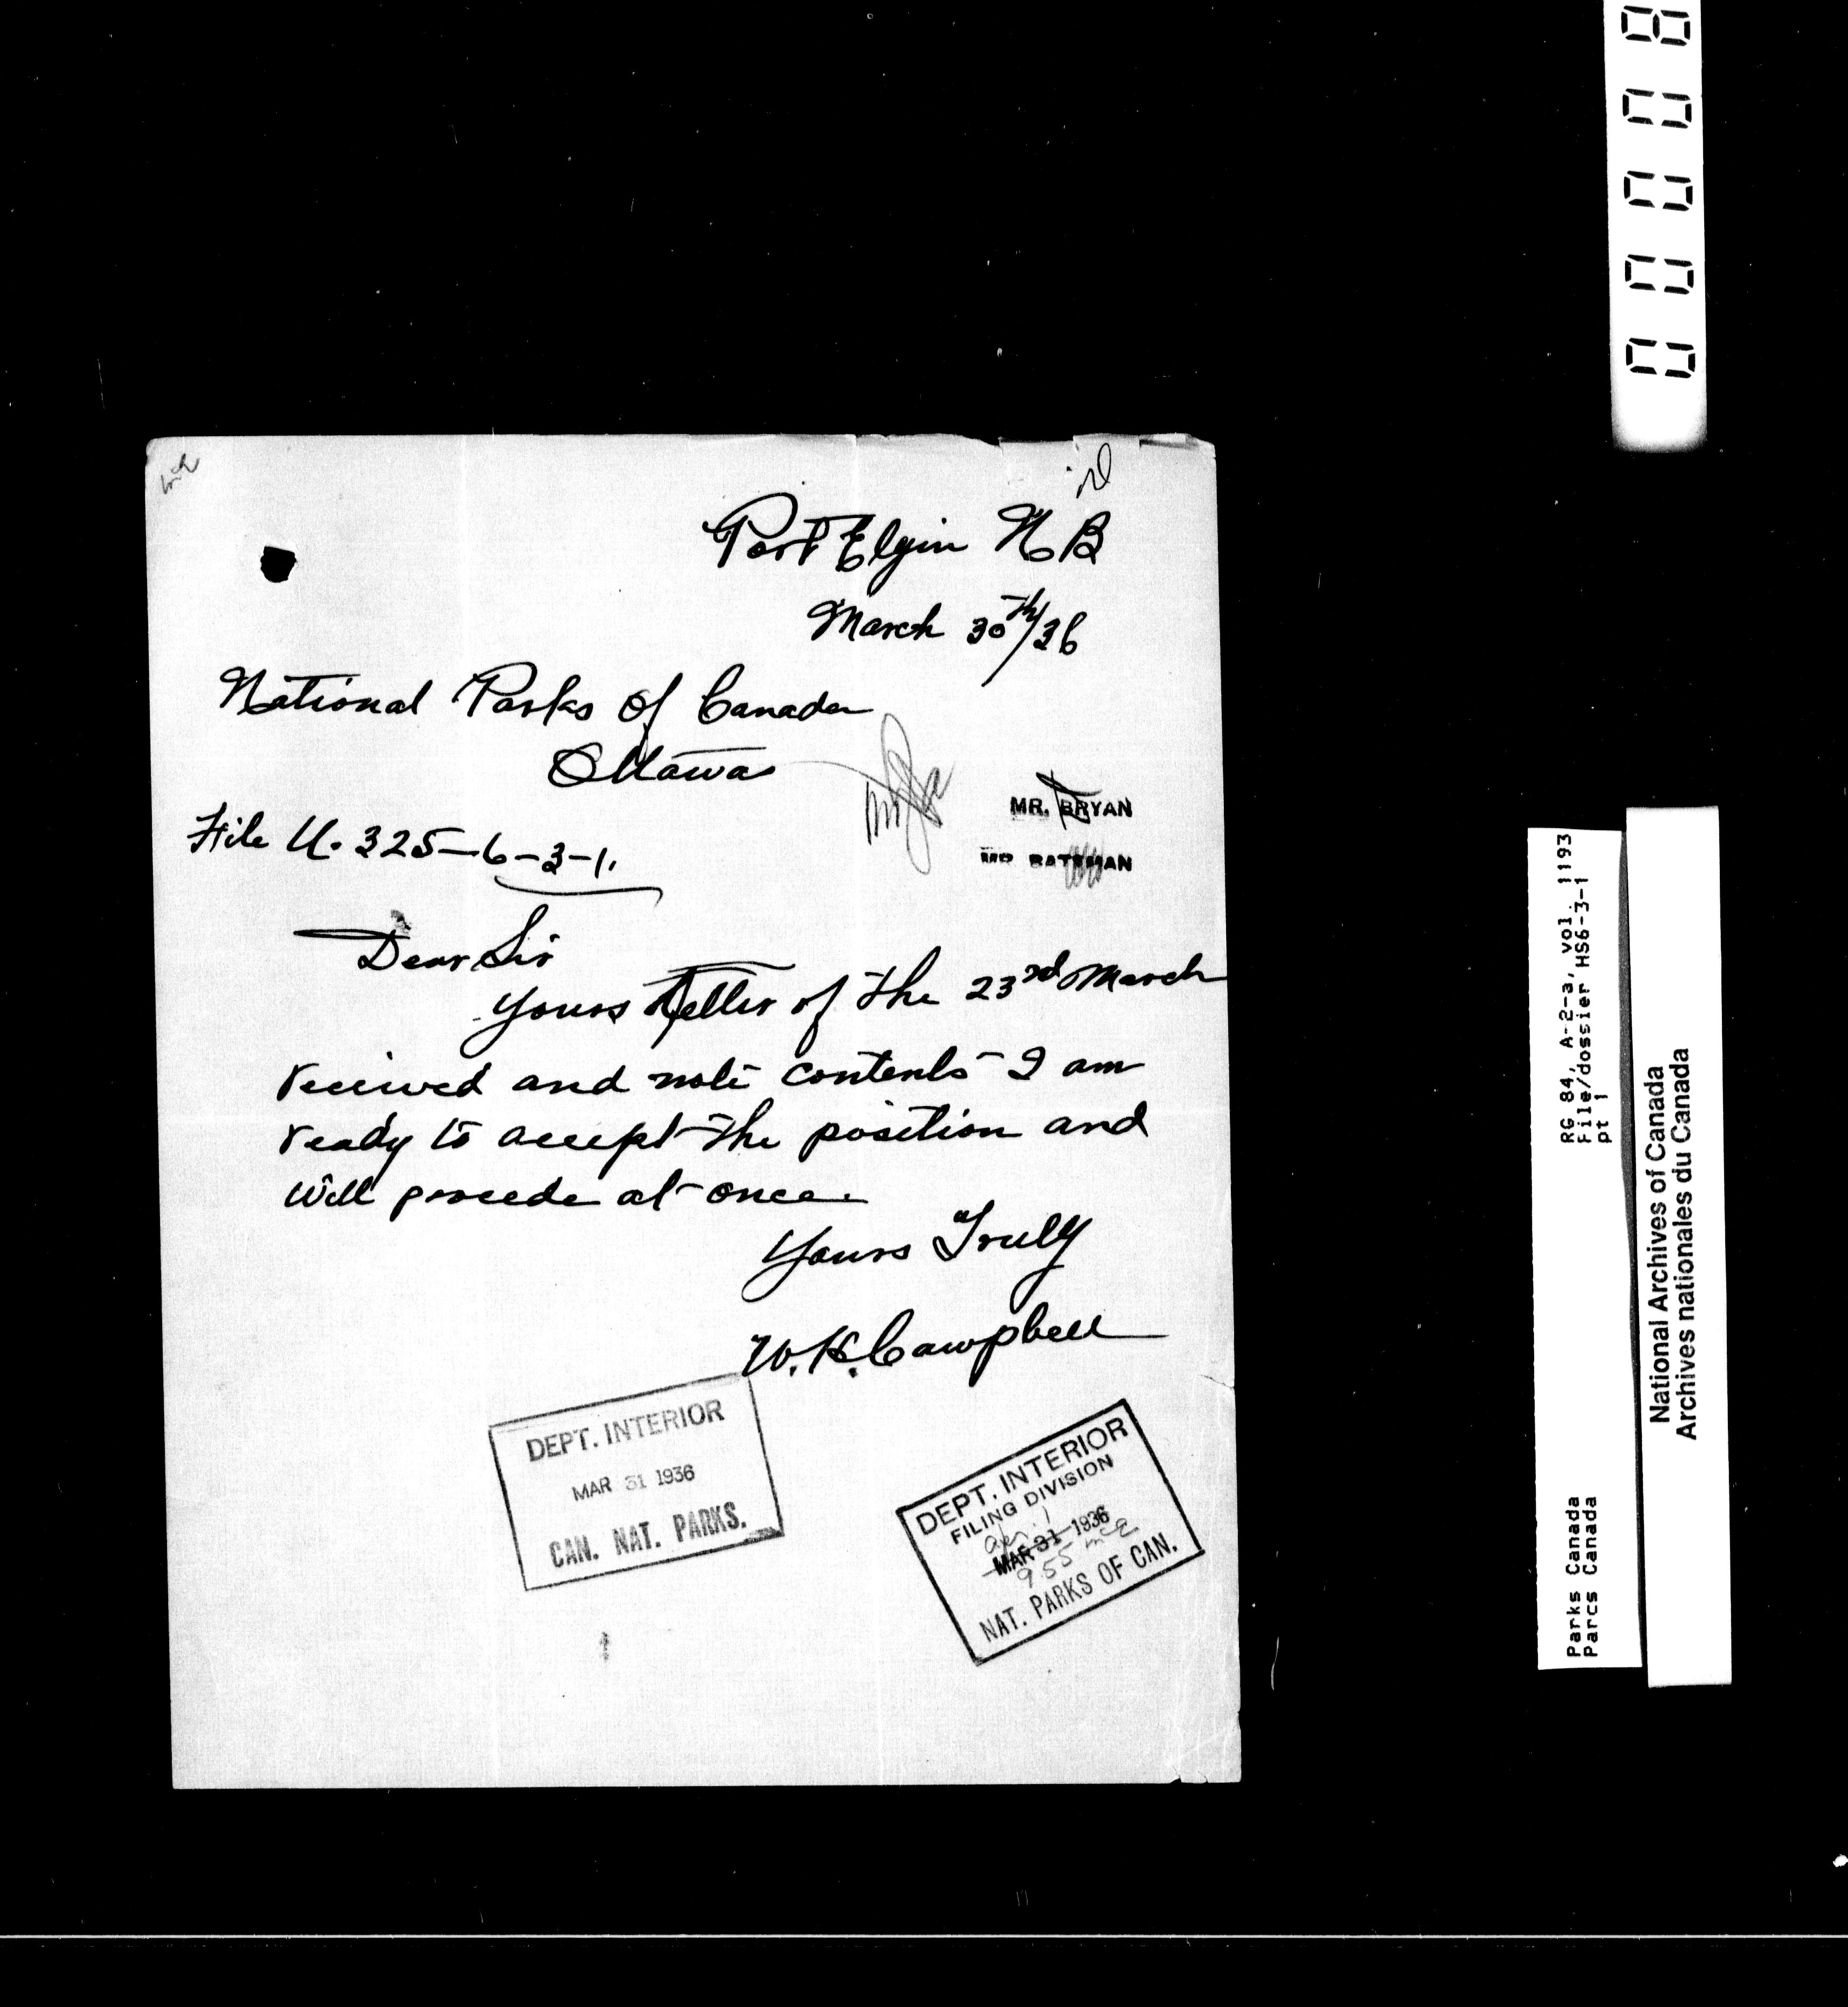 Port Elgin N B
March 30th/36
National Parks of Canada
Ottawa
File U. 325-6-3-1.
MR. BRYAN
MR. BATEMAN
Dear Sir
Yours letter of the 23rd March
received and note contents I am
ready to accept the position and
will procede at once.
Yours Truly
W. H. Campbell
DEPT. INTERIOR
MAR 31 1936
CAN. NAT. PARKS.
DEPT. INTERIOR
FILING DIVISION
MAR 31 1936
9 55
NAT. PARKS OF CAN.
00008
RG 84, A-2-a, vol. 1193
File/dossier HS6-3-1
pt 1
Parks Canada
Parcs Canada
National Archives of Canada
Archives nationales du Canada